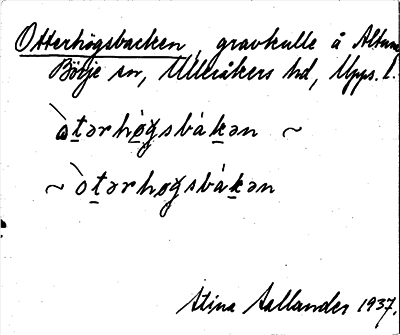 Otterhögsbacken, gravkulle å Altuna,
Börje sn, Ulleråkers hd, Upps. l.
òtərhø̀gsbákən ~
~ òtərhøgsbákən
Stina Aallander 1937.